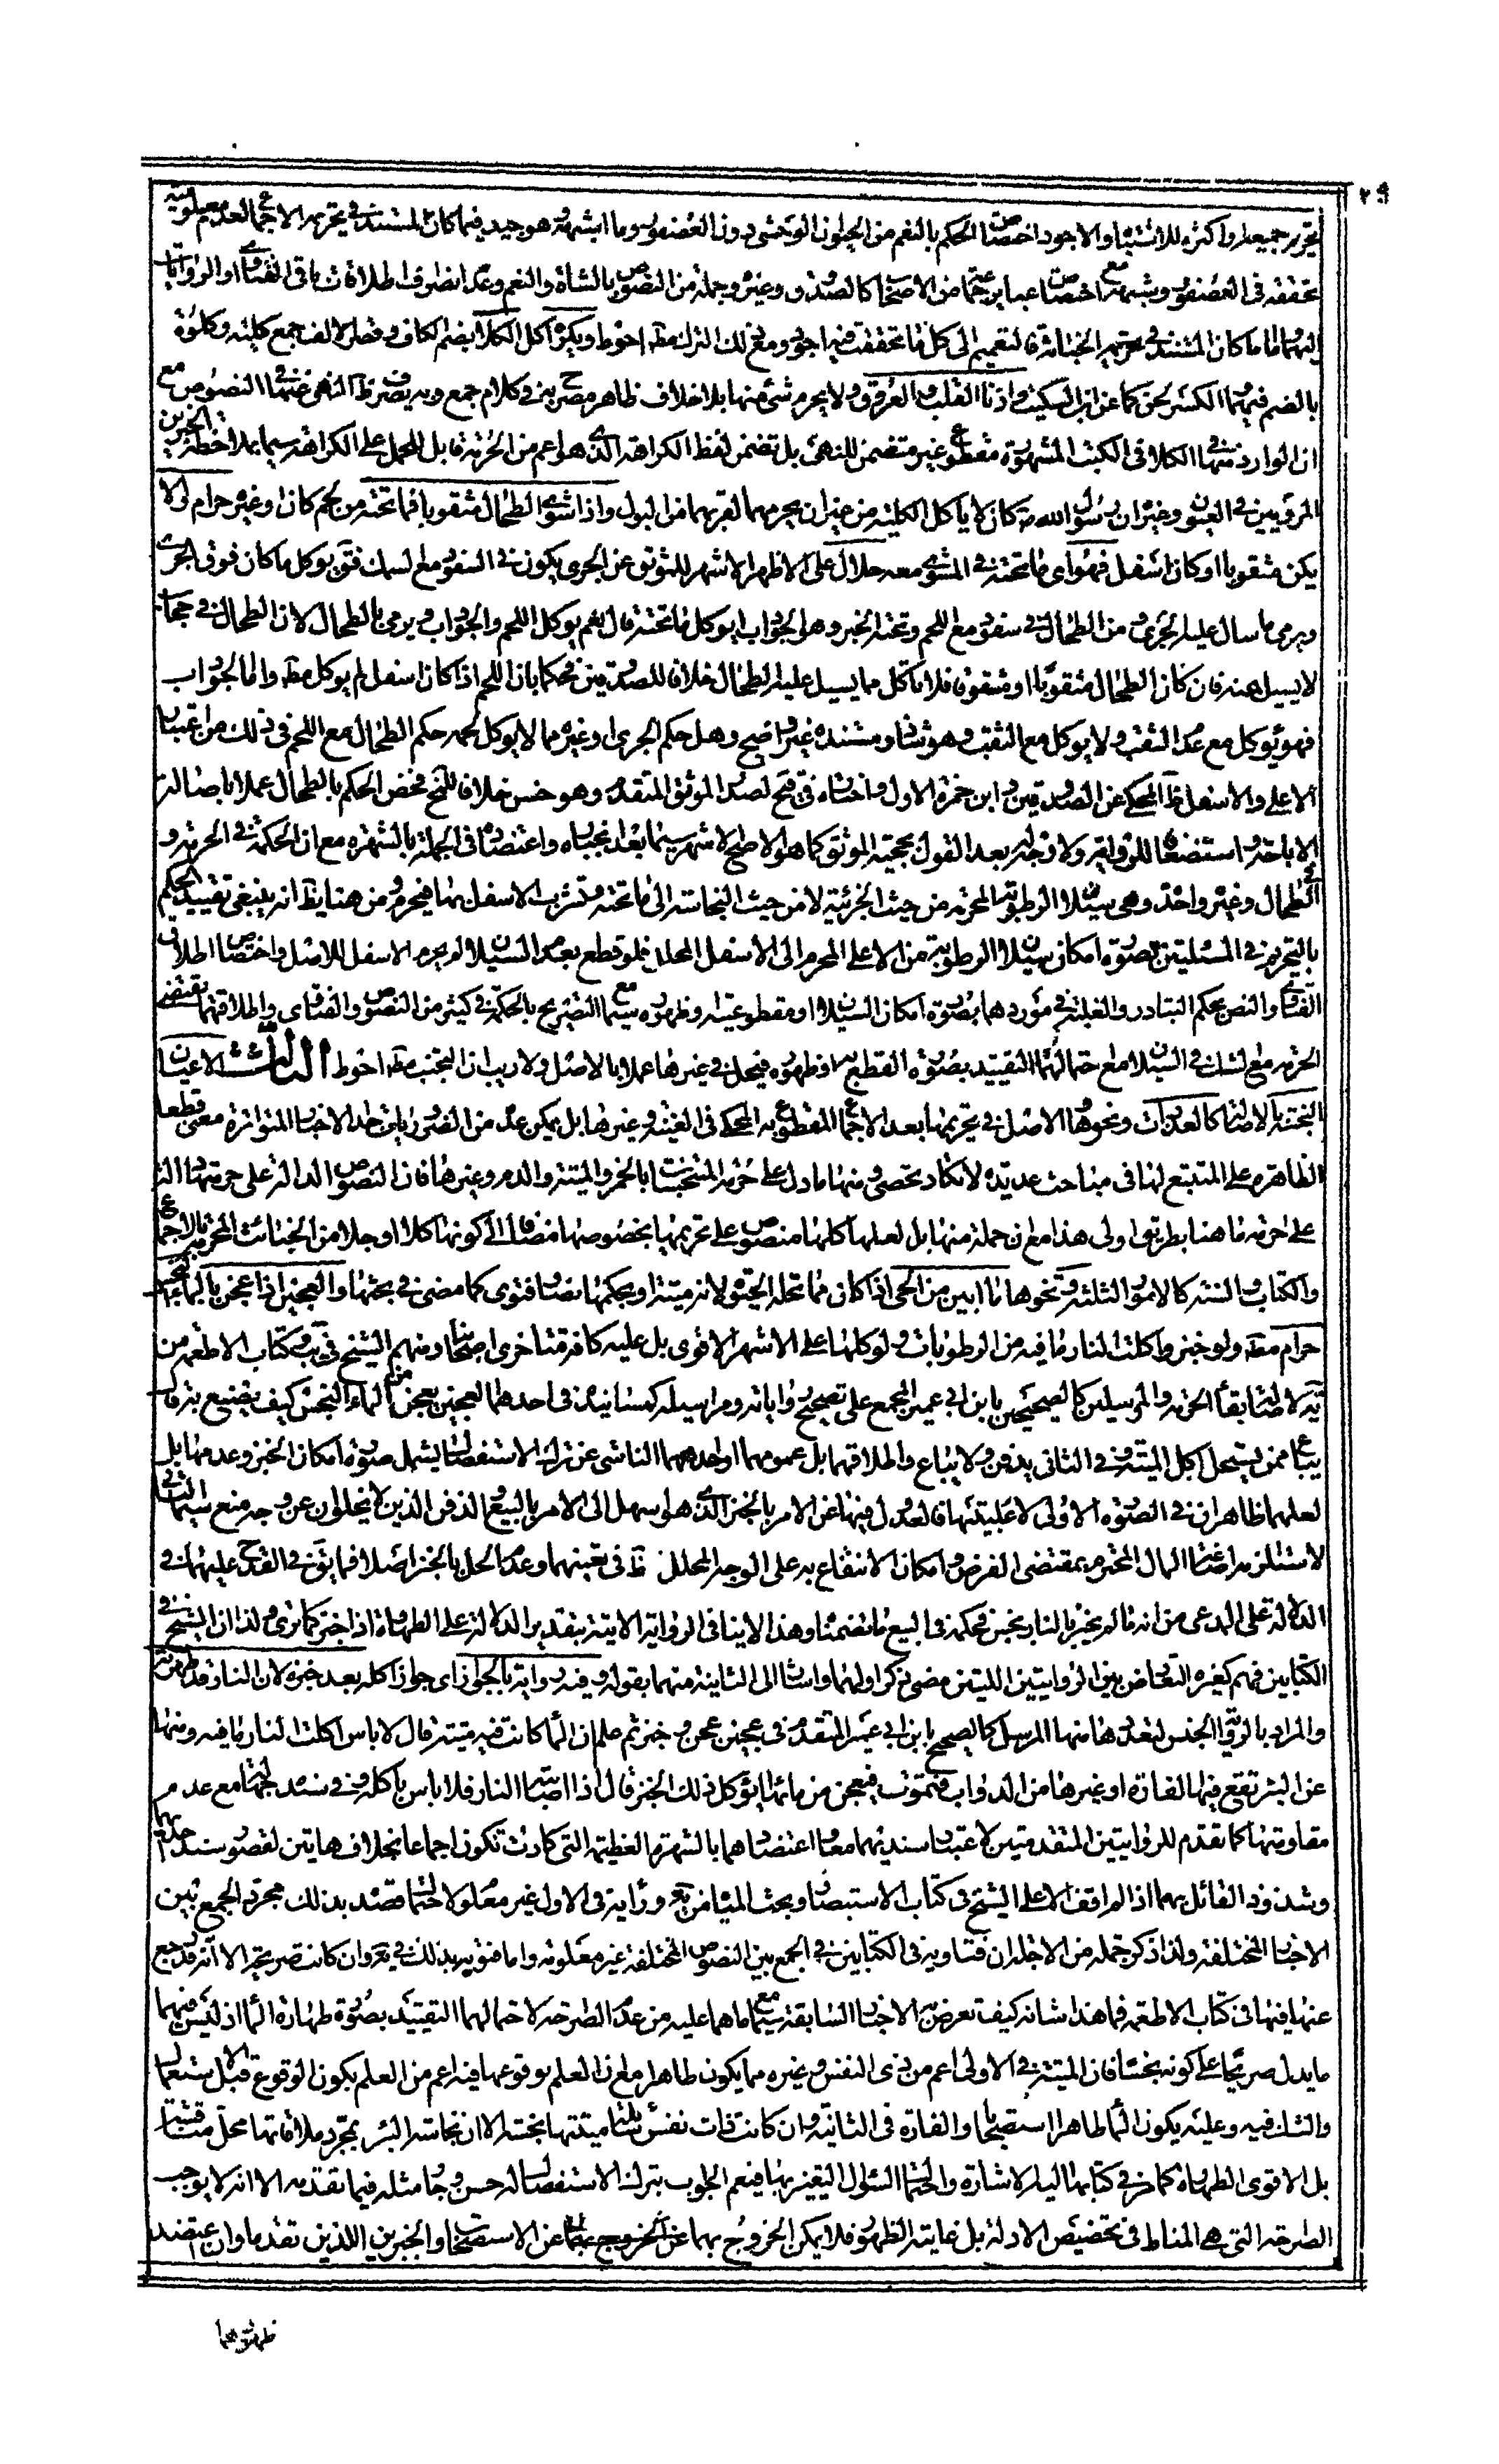 ٢٩
تحريم جميعها واكثره للاشتباه والاجود اختصاص الحكم بالنعم من الحيوان الوحشي دون العصفور وما اشبهه وهو جيد فيما كان المستند في تحريمه الاجماع لعدم معلومية
تحققه في العصفور وشبهه مع اختصاص عبا ير جماعة من الاصحاب كالصدوق وغيره وجملة من النصوص بالشاة والنعم وعدم انصراف اطلاقات باقي الفتاوى والروايات
اليهما اما ما كان المستند في تحريمه الخباثة فالتعميم الى كل ما تحققت فيه اجود ومع ذلك الترك مطلقا احوط ويكره اكل الكلا بضم الكاف وقصر الالف جمع كلية وكلوة
بالضم فيهما والكسر لحن كما عن ابن السكيت واذنا القلب والعروق ولا يحرم شئ منها بلا خلاف ظاهر مصرح به في كلام جمع وبه يصرف ظاهر النهي عنها في النصوص مع
ان الوارد منها في الكلا في الكتب المشهورة مقطوع غير متضمن للنهي بل تضمن لفظ الكراهة الذي هو اعم من الحرمة قابل للحمل على الكراهة سيما بملاحظة الخبرين
المرويين في العيون وخبر ان رسول الله ص كان لا ياكل الكلية من غير ان يحرمهما لقربهما من البول واذا شوي الطحال مثقوبا فما تحته من لحم كان او غيره حرام ولو لا
يكن مثقوبا او كان اسفل فهو اي ما تحته في المشوي معه حلال على الاظهر الاشهر للموثق عن الجري يكون في السفود مع السمك فقق يوكل ما كان فوق الجري
ويرمى ما سال عليه الجري وعن الطحال في سفود مع اللحم وتحته الخبز وهو الجوذاب ايوكل ما تحته قال نعم يوكل اللحم والجوذاب ويرمى بالطحال لان الطحال في حجاب
لا يسيل منه فان كان الطحال مثقوبا او مشقوقا فلا تاكل مما يسيل عليه الطحال خلافا للصدوقين فحكما بان اللحم اذا كان اسفل لم يوكل مطلقا واما الجوذاب
فهو يوكل مع عدم الثقب ولا يوكل مع الثقب وهو شاذ ومستنده غير واضح وهل حكم الجري او غيره مما لا يوكل لحمه حكم الطحال مع اللحم في ذلك من اعتبار
الاعلى والاسفل ظاهر المحكي عن الصدوقين وابن حمزة الاول واختاره في فتح لصدر الموثق المتقدم وهو حسن خلافا للح فخص الحكم بالطحال عملا باصالة
الاباحة واستضعافا للرواية ولا وجه له بعد القول بحجية الموثق كما هو الاصح الاشهر سيما بعد انجباره واعتضاده في الجملة بالشهرة مع ان الحكمة في الحرمة و
في الطحال وغيره واحدة وهي سيلان الرطوبة المحرمة من حيث الجزئية لا من حيث النجاسة الى ما تحته وتشرب الاسفل بها فيحرم ومن هنا يظهر انه ينبغي تقييد الحكم
بالتحريم في المسئلتين بصورة امكان سيلان الرطوبة من الاعلى المحرم الى الاسفل المحلل فلو قطع بعدم السيلان لم يحرم الاسفل للاصل واختصاص اطلاق
الفتاوى والنص بحكم التبادر والغلبة في موردهما بصورة امكان السيلان او مقطوعيته وظهوره سيما مع التصريح بالحكمة في كثير من النصوص والفتاوى واطلاقهما يقتضي
الحرمة مع الشك في السيلان مع احتمالهما التقييد بصورة القطع به او ظهوره فيحل في غيرها عملا بالاصل ولا ريب ان التجنب مطلقا احوط الثالث الاعيان
النجسة بالاصالة كالعذرات ونحوها والاصل في تحريمها بعد الاجماع المقطوع به المحكي في الغنية وغيرها بل يمكن عده من الضروريات جدا الاخبار المتواترة معنى قطعا
الظاهرة على المتتبع لها في مباحث عديدة لا تكاد تحصى ومنها ما دل على حرمة المتنجسات بالخمر والميتة والدم وغيرها فان النصوص الدالة على حرمتها دالة
على حرمة ما هنا بطريق اولى هذا مع ان جملة منها بل لعلها كلها منصوص على تحريمها بخصوصها مضافا الى كونها كلا او جلا من الخبائث المحرمة بالاجماع
والكتاب والسنة كالامور الثلثة ونحوها ما ابين من الحي اذا كان مما تحله الحيوة لانه ميتة او بحكمها نصا وفتوى كما مضى في بحثها والعجين اذا عجن بالماء النجس
حرام مطلقا ولو خبز واكلت النار ما فيه من الرطوبات ولو كلها على الاشهر الاقوى بل عليه كافة متاخري اصحابنا ومنهم الشيخ في يب وكتاب الاطعمة من
يه لاصالة بقاء الحرمة والمرسلين كالصحيحين بابن ابي عمير المجمع على تصحيح رواياته ومراسيله كمسانيده في احدهما العجين يعجن من الماء النجس كيف يصنع به قال
يباع ممن يستحل اكل الميتة وفي الثاني يدفن ولا يباع واطلاقهما بل عمومهما او احدهما الناشئ عن ترك الاستفصال يشمل صورة امكان الخبز وعدمها بل
لعلهما ظاهران في الصورة الاولى لاغلبيتها فالعدول فيها عن الامر بالخبز الذي هو اسهل الى الامر بالبيع والدفن الذين لا يخلوان عن وجه منع سيما الثاني
لاستلزامه اضاعة المال المحترم بمقتضى الفرض وامكان الانتفاع به على الوجه المحلل ظاهر في تعينهما وعدم الحل بالخبز اصلا فما يقق في القدح عليهما في
الدلالة على المدعى من انه ما لم يخبز بالنار نجس فحكمه في البيع ما تضمنا وهذا لا ينافي الرواية الاتية بتقدير الدلالة على الطهارة اذا خبز كما ترى ولذا ان الشيخ في
الكتابين فهم كغيره التعارض بين الروايتين اللتين مضى ذكر اولهما واشار الى الثانية منهما بقوله وفيه رواية بالجواز اي جواز اكله بعد خبزه لان النار قد طهرته
والمراد بالرواية الجنس لتعددها منها المرسل كالصحيح بابن ابي عمير المتقدم في عجين عجن وخبز ثم علم ان الماء كانت فيه ميتة قال لا باس اكلت النار ما فيه ومنها
عن البئر تقع فيها الفارة او غيرها من الدواب فتموت فيعجن من مائها ايؤكل ذلك الخبز قال اذا اصابته النار فلا باس باكله وفي سند جهالة مع عدم
مقاومتها كما تقدم للروايتين المتقدمتين لاعتبار سنديهما معا واعتضادهما بالشهرة العظيمة التي كادت تكون اجماعا بخلاف هاتين لقصور سند احديهما
وشذوذ القائل بهما اذ لم اقف الا على الشيخ في كتاب الاستبصار وبحث المياه من يه ورأيه في الاول غير معلوم لاحتمال قصده بذلك مجرد الجمع بين
الاخبار المختلفة ولذا ذكر جملة من الاجلة ان فتاويه في الكتابين في الجمع بين النصوص المختلفة غير معلومة واما فتويه بذلك في يه وان كانت صريحة الا انه قد رجع
عنها فيها في كتاب الاطعمة فما هذا شانه كيف تعرض به الاخبار السابقة سيما مع ما هما عليه من عدم الصراحة لاحتمالهما التقييد بصورة طهارة الماء اذ ليس فيهما
ما يدل صريحا على كونه نجسا فان الميتة في الاولى اعم من ذي النفس وغيره مما يكون طاهرا مع ان العلم بوقوعها فيه اعم من العلم بكون الوقوع قبل الاستعمال
والشك فيه وعليه يكون الماء طاهرا استصحابا والفارة في الثانية وان كانت ذات نفس سائلة ميتتها نجسة الا ان نجاسة البئر بمجرد ملاقاتها محل مناقشة
بل الاقوى الطهارة كما مر في كتابها اليه الاشارة واحتمال السؤال التغير بها فيعم الجواب بترك الاستفصال له حسن وجار مثله فيما تقدمه الا انه لا يوجب
الصراحة التي هي المناط في تخصيص الادلة بل غايته الظهور فلا يمكن الخروج بهما عن الخروج بهما عن الاستصحاب والخبرين اللذين تقدما وان اعتضد
ظهورهما